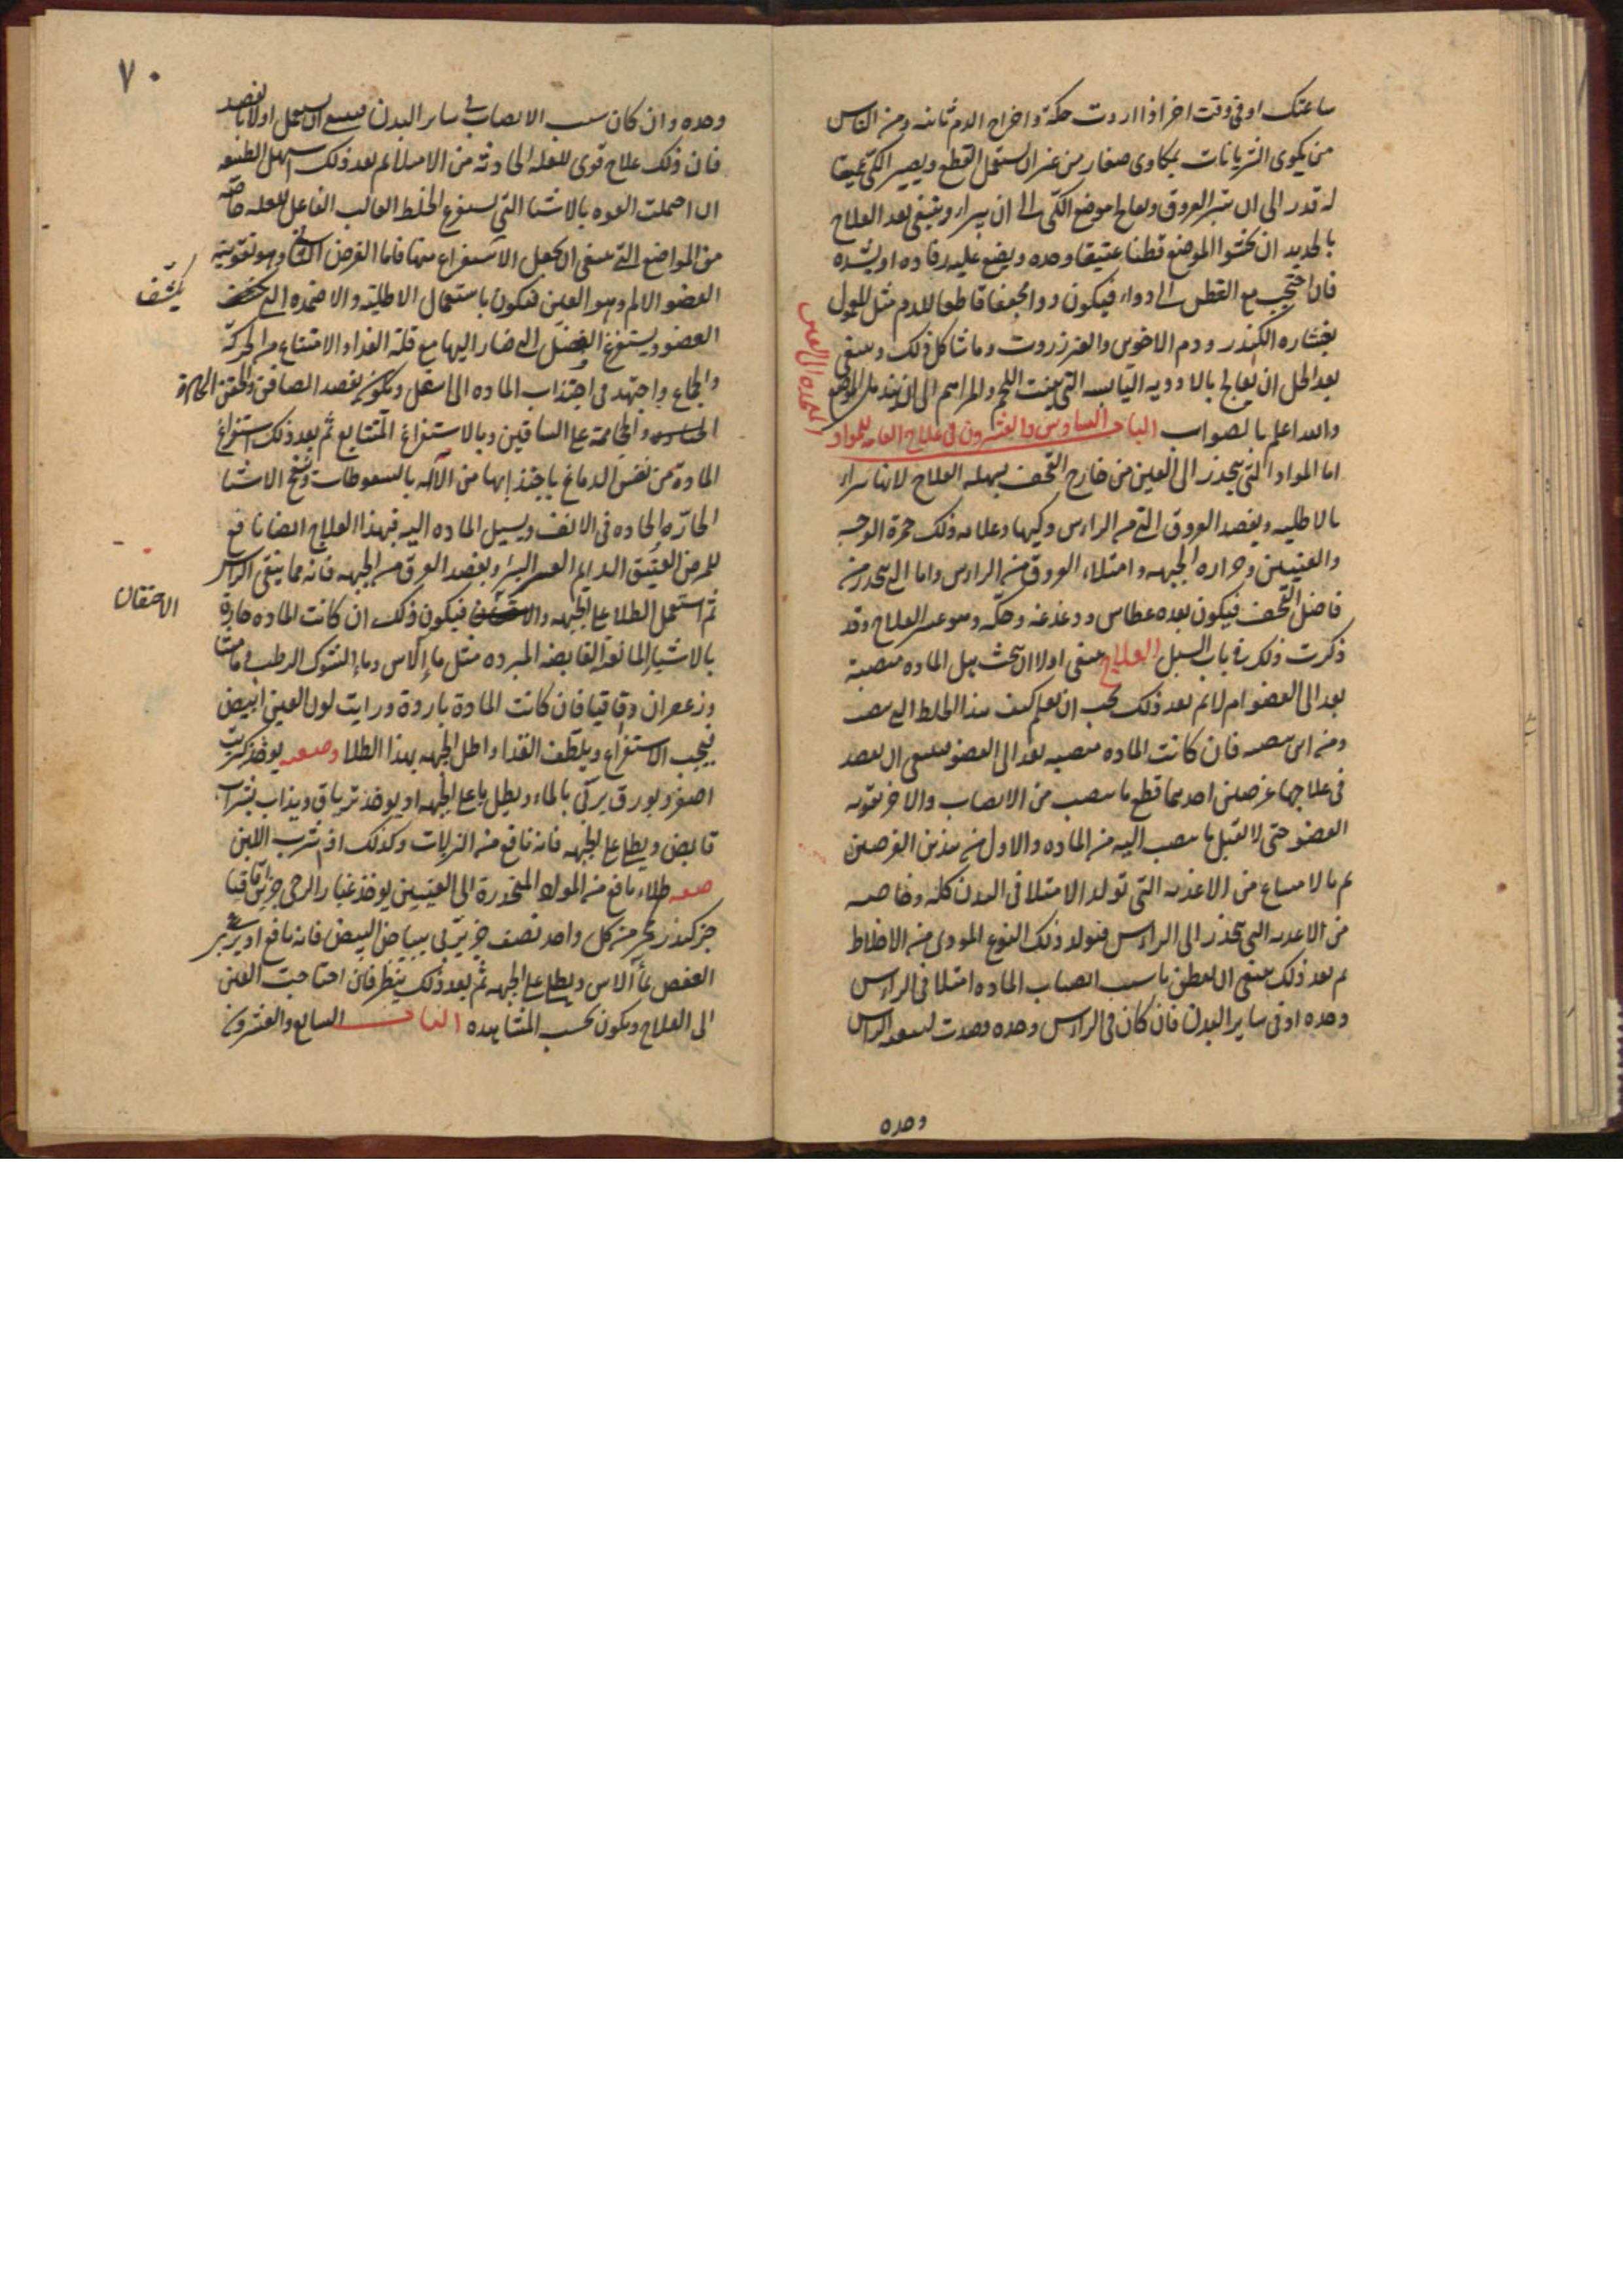 ساعتك او فى وقت اخر اذا اردت حكة واخراج الدم ثانيه ومن الناس
من يكوى الشريانات بمكاوى صغار من غير ان يستعمل القطع ويصير الكى عميقا
له قدر الى ان تبتر العروق ويعالج موضع الكى الى ان يبراء وينبغى بعد العلاج
بالحديد ان تحشو الموضع قطنا عتيقا وحده ويضع عليه رفاده او يشده
فان احتجب مع القطن الى دواء فيكون دوا مجففا قاطعا للدم مثل المعمول
بقشاره الكندر ودم الاخوين والعنزروت وما شاكل ذلك وينبغى
بعد الحل ان يعالج بالادويه اليابسه التى ينبت اللحم والمراهم الى ان يندمل الموضع
والله اعلم بالصواب الباب السادس والعشرون فى علاج العامه للمواد
المنحدره الى العين
اما المواد التى ينحدر الى العين من خارج القحف يسهله العلاج لانها تبراء
بالاطليه وبفصد العروق التى من الراس وكيها وعلامه ذلك حمرة الوجه
والعينين وحراره الجبهه وامتلاء العروق من الراس واما التى ينحدر من
داخل القحف فيكون بعده عطاس ودغدغه وحكه وهو عسر العلاج وقد
ذكرت ذلك فى باب السبل العلاج ينبغى اولا ان تبحث هل الماده منصبة
بعد الى العضو ام لا ثم بعد ذلك يجب ان تعلم كيف هذا الخلط الذى ينصب
ومن اين ينصب فان كانت الماده منصبه بعد الى العضو فينبغى ان يقصد
فى علاجها غرضين احدهما قطع ما ينصب من الانصاب والاخر تقويه
العضو حتى لا تقبل ما ينصب اليه من الماده والاول من هذين الغرضين
ثم بالامتناع من الاغذيه التى تولد الامتلا فى البدن كله وخاصه
من الاغذيه التى تنحدر الى الراس فتولد ذلك النوع الموذى من الاخلاط
ثم بعد ذلك ينبغى ان تفطن ما سبب انصباب الماده امتلا فى الراس
وحده او فى ساير البدن فان كان فى الراس وحده قصدت لتنقيه الراس
وحده
٧٠
وحده وان كان سبب الانصاب فى ساير البدن فينبغى ان يستعمل اولا بالفصد
فان ذلك علاج قوى للعله الحادثه من الامتلا ثم بعد ذلك اسهل الطبيعه
ان احتملت القوه بالاشيا التى تستفرغ الخلط الغالب الفاعل للعله خاصه
من المواضع التى ينبغى ان يجعل الاستفراغ منها فاما الغرض الثانى وهو تقوية
العضو الالم وهو العين فيكون باستعمال الاطليه والاضمده التى
يكشف
العضو ويستفرغ الفضل الذى صار اليها مع قلة الغداء والامتناع من الحركة
والجماع واجتهد فى اجتذاب الماده الى اسفل ويكون بفصد الصافن والحقن الحاره
والحجامة على الساقين وبالاستفراغ المتتابع ثم بعد ذلك استفراغ
المادة من نفس الدماغ باجتذابها من الآله بالسعوطات ونفخ الاشيا
الحارة الحاده فى الانف ويسيل الماده اليه فهذا العلاج ايضا نافع
للمرض العتيق الدايم العسر البرء وبفصد العرق من الجبهه فانه مما ينقى الراس
ثم استعمل الطلا على الجبهه والاحتقان فيكون ذلك ان كانت الماده حارة
الاحتقان
بالاشياء المانعه القابضه المبرده مثل ماء الآس وماء الشوك الرطب وماميثا
وزعفران وقاقيا فان كانت المادة باردة ورايت لون العين ابيض
فيجب الاستفراغ ويلطف الغدا واطل الجبهه بهذا الطلا وصفته يوخذ كبريت
اصفر وبورق يربى بالماء ويطلى ما على الجبهه او يوخذ ترياق ويذاب بشراب
قابض ويطلى على الجبهه فانه نافع من النزلات وكذلك اذا شرب اللبن
صفه طلاء نافع من المواد المنحدرة الى العينين يوخذ غبار الرحى جزاين قاقيا
جز كندر مر من كل واحد نصف جز يربى ببياض البيض فانه نافع او يربى
العفص بماء الاس ويطلى على الجبهه ثم بعد ذلك ينظر فان احتاجت العين
الى العلاج ويكون بحسب المشاهده الباب السابع والعشرون